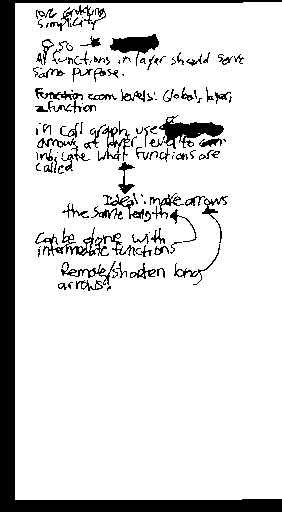 simplicity
All functions in layer should serve
same purpose.
Function zoom levels: Global, layer,
function
in call graph, use
arrows at lower level to
indicate what functions are
called
Ideal: make arrows
the same length
Can be done with
intermediate functions
Remove/shorten long
arrows?